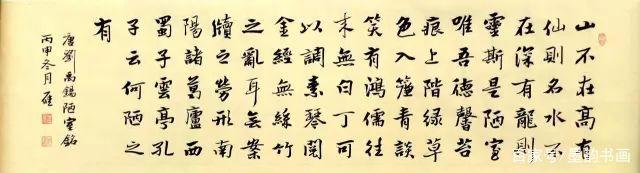 山不在高有
仙則名水不
在深有龍則
靈斯是陋室
唯吾德馨苔
痕上階緑草
色入簾青談
笑有鴻儒往
来無白丁可
以調素琴閱
金經無絲竹
之亂耳無案
牘之勞形南
陽諸葛廬西
蜀子雲亭孔
子云何陋之
有
唐劉禹錫陋室銘
丙申冬月
百家号/墨韵书画